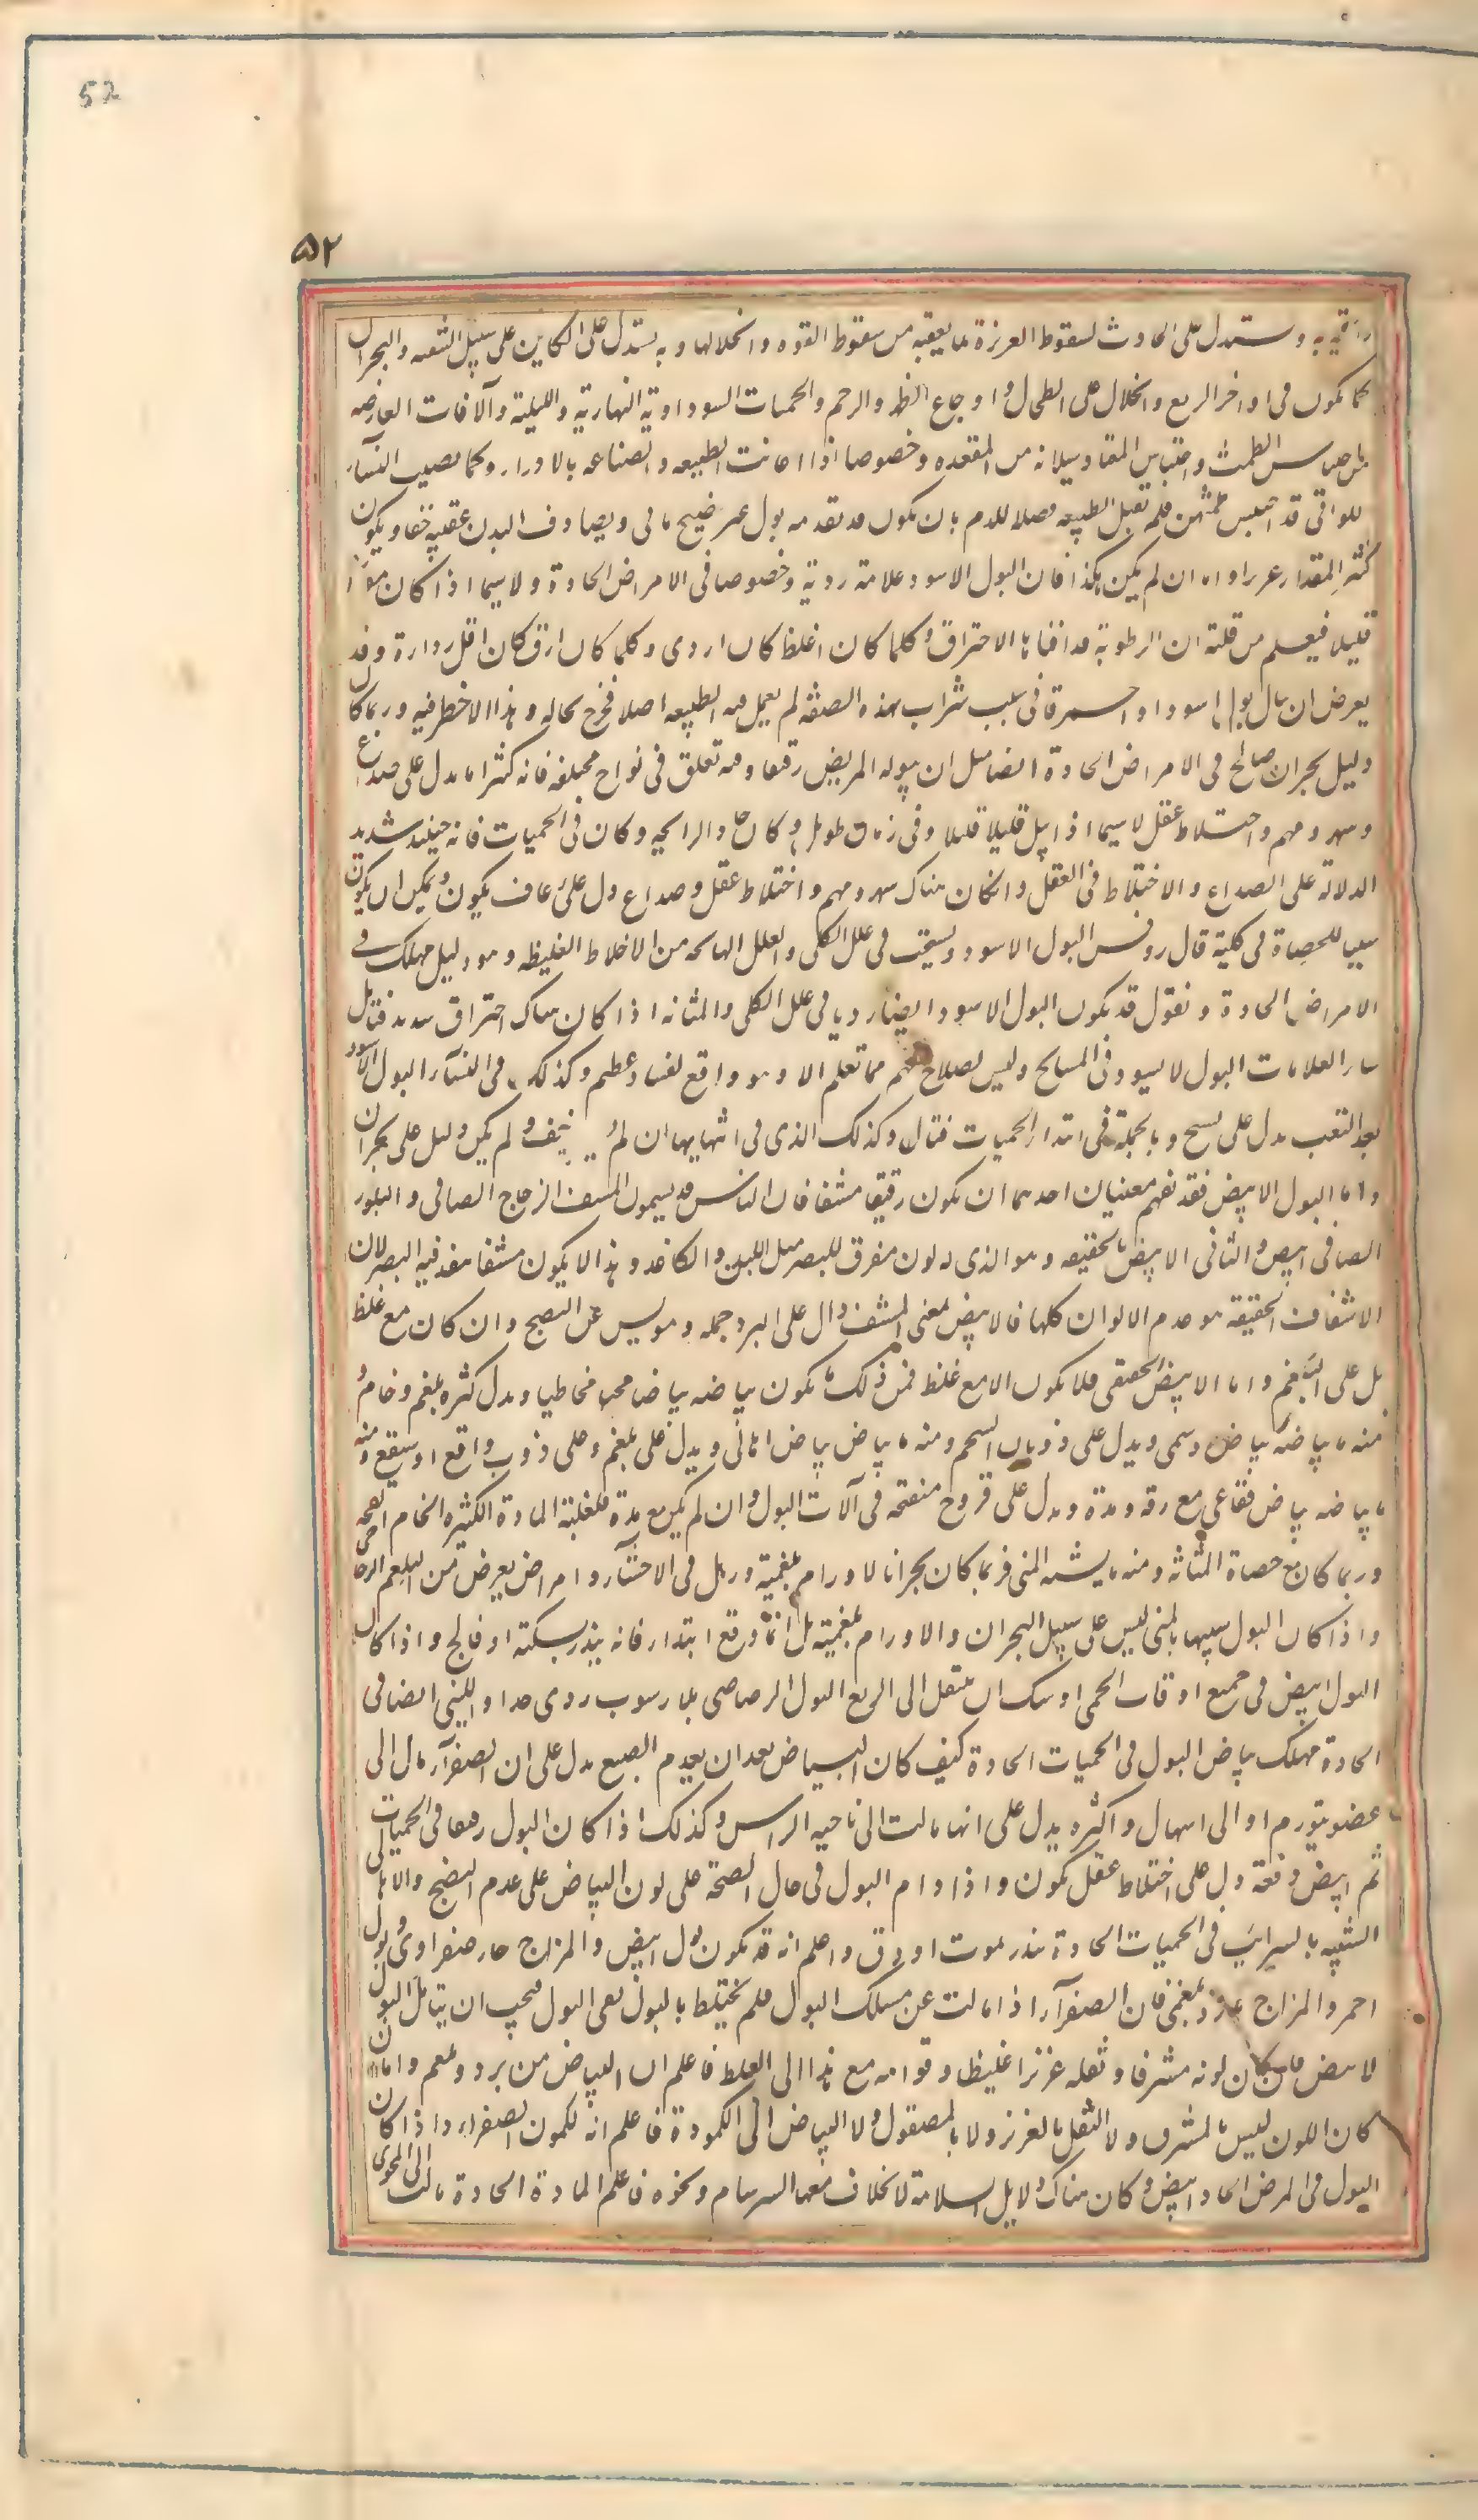 52
۵۲
رائحته و يستدل على الحادث لسقوط الغريزة بما يعقبه من سقوط القوة و انحلالها و به يستدل على الكاين على سبيل التنقيه و البحران
كما يكون فى اواخر الربع و انحلال علل الطحال و اوجاع الظهر و الرحم و الحميات السوداوية النهارية و الليلية و الآفات العارضه
من احتباس الطمث و احتباس المعتاد سيلانه من المقعده و خصوصا اذا اعانت الطبيعه و الصناعه بالادرار و كما يصيب النسآء
اللواتى قد احتبس طمثهن فلم تقبل الطبيعه فضلة الدم بان يكون قد تقدمه بول غير نضيج مائى و يصادف البدن عقيبه خفا و يكون
كثير المقدار غزيرا و اما ان لم يكن هكذا فان البول الاسود علامة ردية و خصوصا فى الامراض الحادة و لا سيما اذا كان مقداره
قليلا فيعلم من قلته ان الرطوبة قد افناها الاحتراق و كلما كان اغلظ كان اردى و كلما كان ارق كان اقل رداءة و قد
يعرض ان يبال بول اسود او احمر قانى بسبب شراب بهذه الصفة لم يعمل فيه الطبيعه اصلا فخرج بحاله و هذا لا خطر فيه و ربما كان
دليل بحران صالح فى الامراض الحادة ايضا مثل ان يبوله المريض رقيقا و فيه تعلق فى نواح مختلفه فانه كثيرا ما يدل على صداع
و سهر و صمم و اختلاط عقل لا سيما اذا بيل قليلا قليلا و فى زمان طويل و كان حاد الرايحه و كان فى الحميات فانه حينئذ شديد
الدلالة على الصداع و الاختلاط فى العقل و ان كان هناك سهر و صمم و اختلاط عقل و صداع دل على رعاف يكون و يمكن ان يكون
سببا للحصاة فى كلية قال روفس البول الاسود يستحب فى علل الكلى و العلل الهائجه من الاخلاط الغليظه و هو دليل مهلك فى
الامراض الحادة و نقول قد يكون البول الاسود ايضا رديا فى علل الكلى و المثانه اذا كان هناك احتراق شديد فتامل
ساير العلامات البول الاسود فى المشايخ و ليس لصلاح فيهم مما تعلم الا و هو واقع لفساد عظيم و كذلك فى النسآء البول الاسود
بعد التعب يدل على تشنج و بالجملة فى ابتداء الحميات قتال و كذلك الذى فى انتهايها ان لم يصحبه خف و لم يكن دليل على بحران
و اما البول الابيض فقد نفهم معنيان احدهما ان يكون رقيقا مشفا فان الناس قد يسمون المشف ابيض الزجاج الصافى و البلور
الصافى ابيض و الثانى الابيض بالحقيقه و هو الذى له لون مفرق للبصر مثل اللبن و الكاغد و هذا لا يكون مشفا ينفذ فيه البصر لان
الاشفاف بالحقيقة هو عدم الالوان كلها فالابيض بمعنى المشف دال على البرد جمله و مويس عن النضج و ان كان مع غلظ
دل على البلغم و اما الابيض الحقيقى فلا يكون الا مع غلظ فمن ذلك ما يكون بياضه بياضا محيا مخاطيا و يدل كثرة بلغم و خام و
منه ما بياضه بياض دسمى و يدل على ذوبان الشحم و منه ما بياضه بياض اهالى و يدل على بلغم و على ذوب واقع او سيقع و منه
ما بياضه بياض فقاعى مع رقه و مدة و يدل على قروح منفتحه فى آلات البول و ان لم يكن مع مدة فلغلبة المادة الكثيره الخام الفجه
و ربما كان مع حصاة المثانه و منه ما يشبه المنى فربما كان بحرانا لاورام بلغمية و رهل فى الاحشآء و امراض يعرض من البلغم الزجاجى
و اذا كان البول شبيها بالمنى ليس على سبيل البحران و الاورام بلغمية بل انما وقع ابتداء فانه ينذر بسكته او فالج و اذا كان
البول ابيض فى جميع اوقات الحمى اوشك ان ينتقل الى الربع البول الرصاصى بلا رسوب ردى جدا و اللبنى ايضا فى
الحادة مهلك بياض البول فى الحميات الحادة كيف كان البياض بعد ان يعدم الصبغ يدل على ان الصفرآء مال الى
عضو يتورم او الى اسهال و اكثره يدل على انها مالت الى ناحيه الراس و كذلك اذا كان البول رقيقا فى الحميات
ثم ابيض دفعة دل على اختلاط عقل يكون و اذا دام البول فى حال الصحة على لون البياض على عدم النضج و الاهالى
الشبيه بالزيت فى الحميات الحادة ينذر بموت او دق و اعلم انه قد يكون بول ابيض و المزاج حار صفراوى و بول
احمر و المزاج بارد بلغمى فان الصفرآء اذا مالت عن مسلك البول فلم يختلط بالبول بقى البول فيجب ان يتامل البول
الابيض فان كان لونه مشرقا و ثفله غزيرا غليظا و قوامه مع هذا الى الغلظ فاعلم ان البياض من برد و بلغم و اما ان
كان اللون ليس بالمشرق و لا الثفل بالغزير و لا بالمصقول و لا البياض الى الكمودة فاعلم انه لكمون الصفراء و اذا كان
البول فى المرض الحاد ابيض و كان هناك دلايل السلامة لا يخاف معها السرسام و نحوه فاعلم المادة الحادة مالت الى المجرى